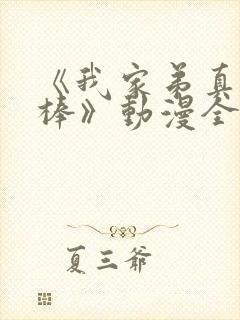 《我家弟真
棒》動漫全
夏三爺